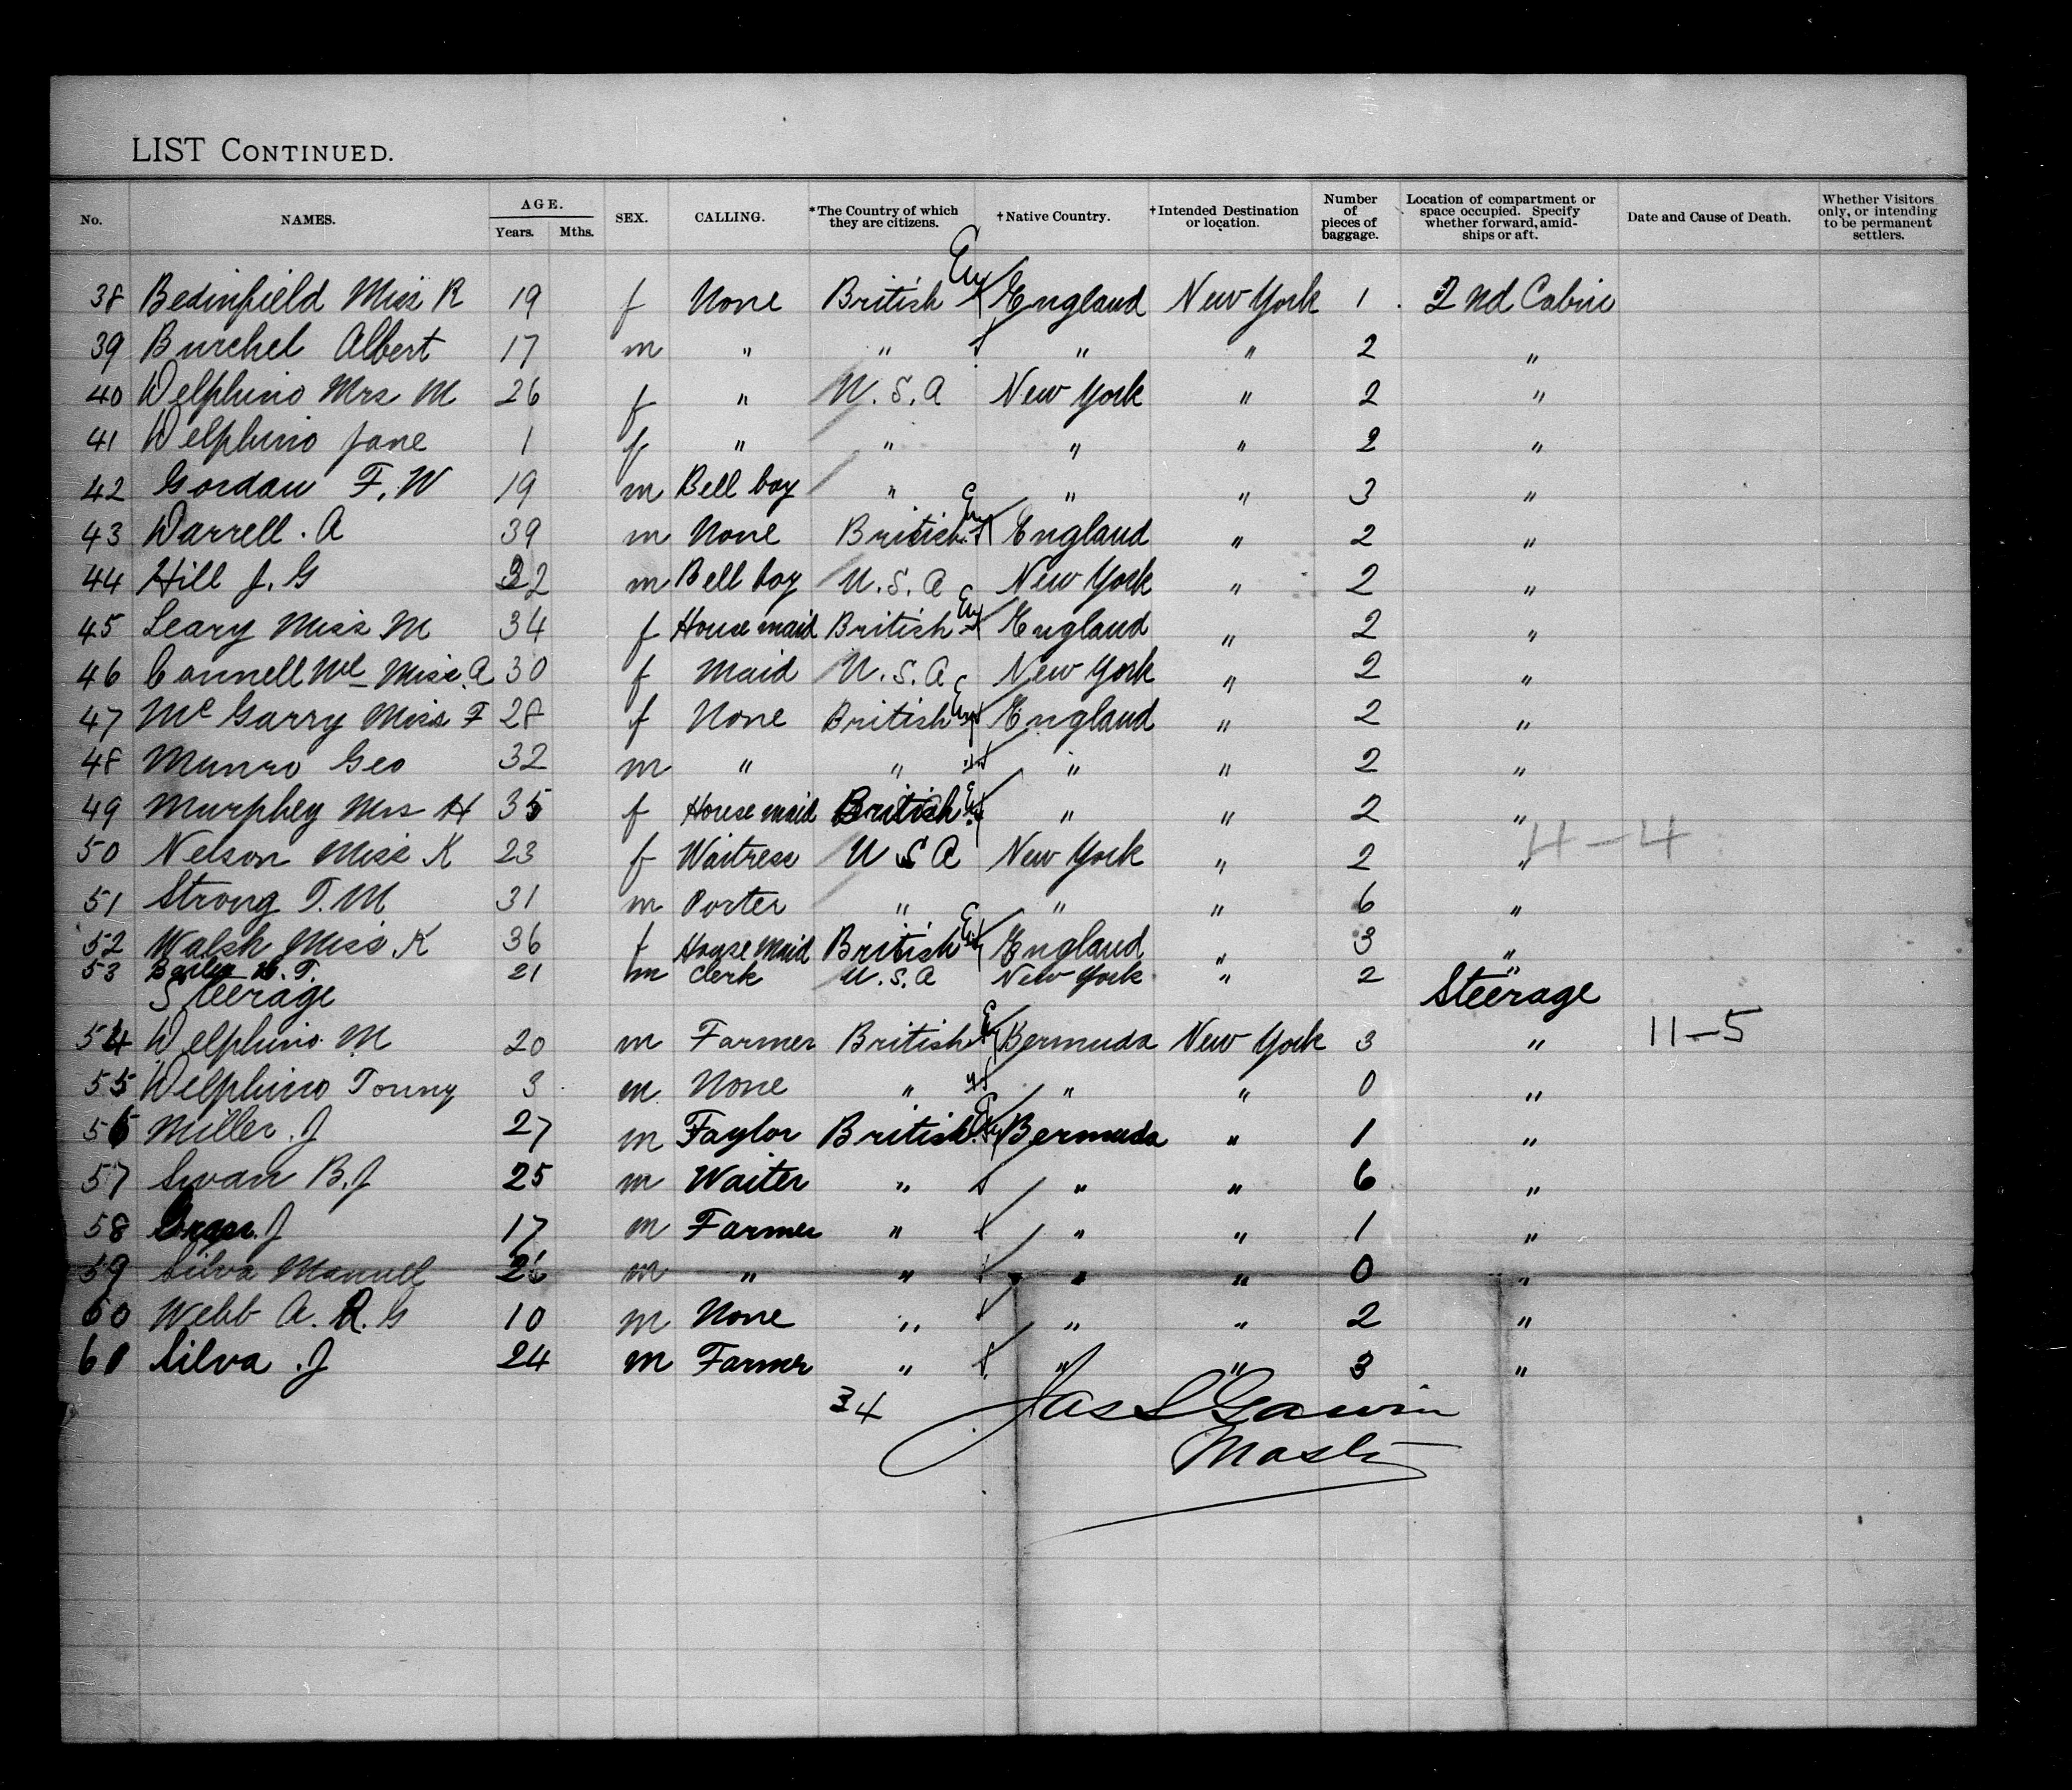 LIST CONTINUED.
No. NAMES. AGE. Years. Mths. SEX. CALLING. *The Country of which they are citizens. †Native Country. †Intended Destination or location. Number of pieces of baggage. Location of compartment or space occupied. Specify whether forward, amidships or aft. Date and Cause of Death. Whether Visitors only, or intending to be permanent settlers.
38 Bedinfield Miss R 19 f None British Eng England New York 1 2nd Cabin
39 Burchel Albert 17 m " " " " 2 "
40 Delphino Mrs M 26 f " U.S.A New York " 2 "
41 Delphino Jane 1 f " " " " 2 "
42 Gordan F. W 19 m Bell boy " " " 3 "
43 Darrell . A 39 m None British Eng England " 2 "
44 Hill J. G 22 m Bell boy U.S.A New York " 2 "
45 Leary Miss M 34 f House maid British Eng England " 2 "
46 Connell Mc Miss. A 30 f Maid U.S.A New York " 2 "
47 Mc Garry Miss F 28 f None British Eng England " 2 "
48 Munro Geo 32 m " " " " " 2 "
49 Murphey Mrs H 35 f House maid British Eng " " 2 "
50 Nelson Miss K 23 f Waitress U S A New York " 2 " 4-4
51 Strong T. M 31 m Porter " " " 6 "
52 Walsh Miss K 36 f House Maid British Eng England " 3 "
53 T. 21 m Clerk U.S.A New York " 2 "
Steerage Steerage
54 Delphino M 20 m Farmer British Eng Bermuda New York 3 " 11-5
55 Delphino Tonny 3 m None " " " " 0 "
56 Miller . J 27 m Taylor British Eng Bermuda " 1 "
57 Swan B. J 25 m Waiter " " " 6 "
58 J 17 m Farmer " " " 1 "
59 Silva Manuel m " " " " 0 "
60 Webb A. R. G 10 m None " " " 2 "
61 Silva . J 24 m Farmer " " " 3 "
34 Jas
Master